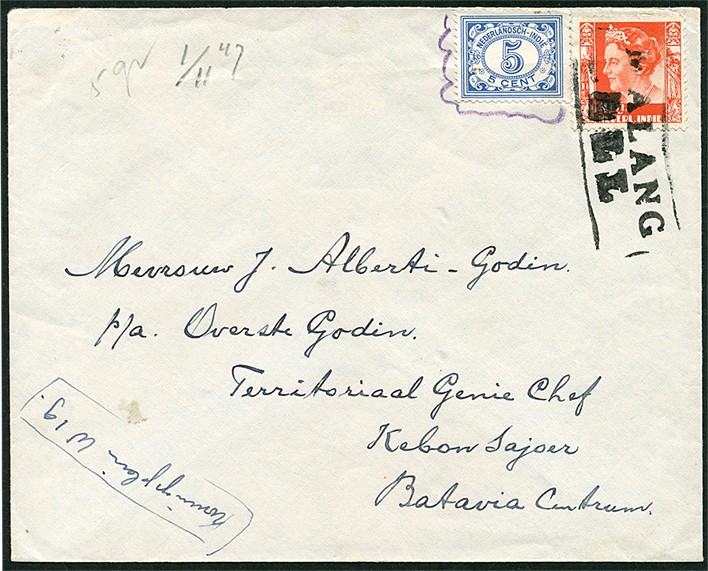 1/11 '47
NEDERLANDSCH-INDIE
5
5 CENT
NED. INDIE
MALANG
Mevrouw J. Alberti-Godin.
p/a. Overste Godin.
Territoriaal Genie Chef
Kebon Sajoer
Batavia Centrum.
Koningsplein W 19.